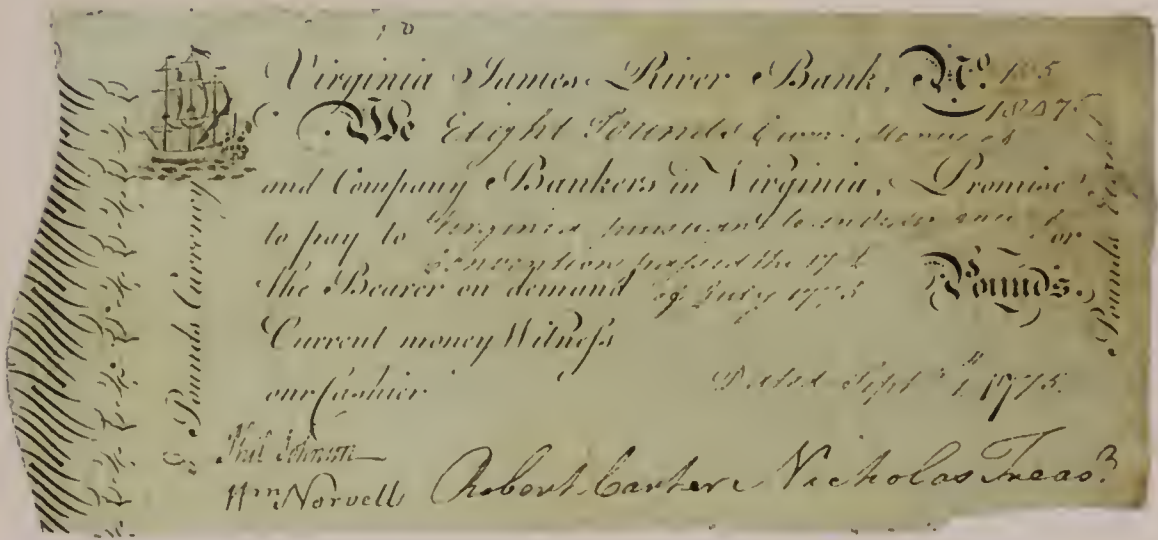 Virginia James River Bank, No.
18075
We Eight Pounds Curr. Money of
and Company Bankers in Virginia, Promise
to pay to Virginia pursuant to ordinance or
Convention passed the 17th
the Bearer on demand of July 1775 Pounds.
Current money Witneſs
our Cashier Dated Sept. 1, 1775.
Phil Johnson
Wm Norvell Robert Carter Nicholas Treasr.
Pounds Currency
Pounds